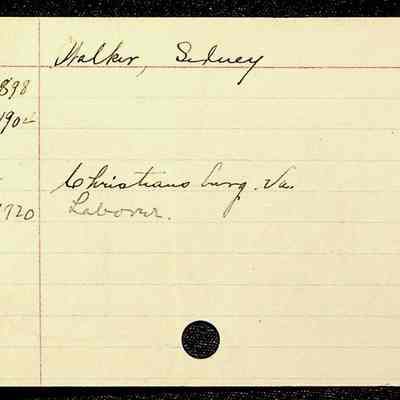 Walker, Sidney
898
1904
Christiansburg. Va.
1920 Laborer.